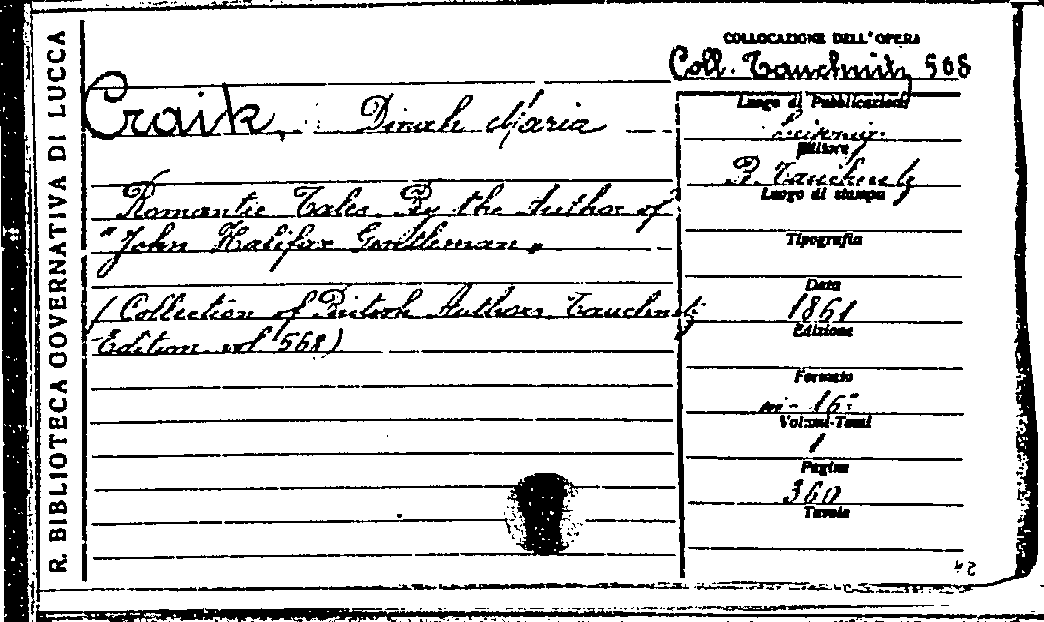 R. BIBLIOTECA GOVERNATIVA DI LUCCA
COLLOCAZIONE DELL'OPERA
Coll. Tauchnitz 568
Craik, Dinah Maria
Romantic Tales. By the Author of
"John Halifax Gentleman"
(Collection of British Authors. Tauchnitz
Edition. vol 568)
Luogo di Pubblicazione
Leipzig
Editore
B. Tauchnitz
Luogo di stampa
Tipografia
Data
1861
Edizione
Formato
in-16°
Volumi-Tomi
1
Pagine
360
Tavole